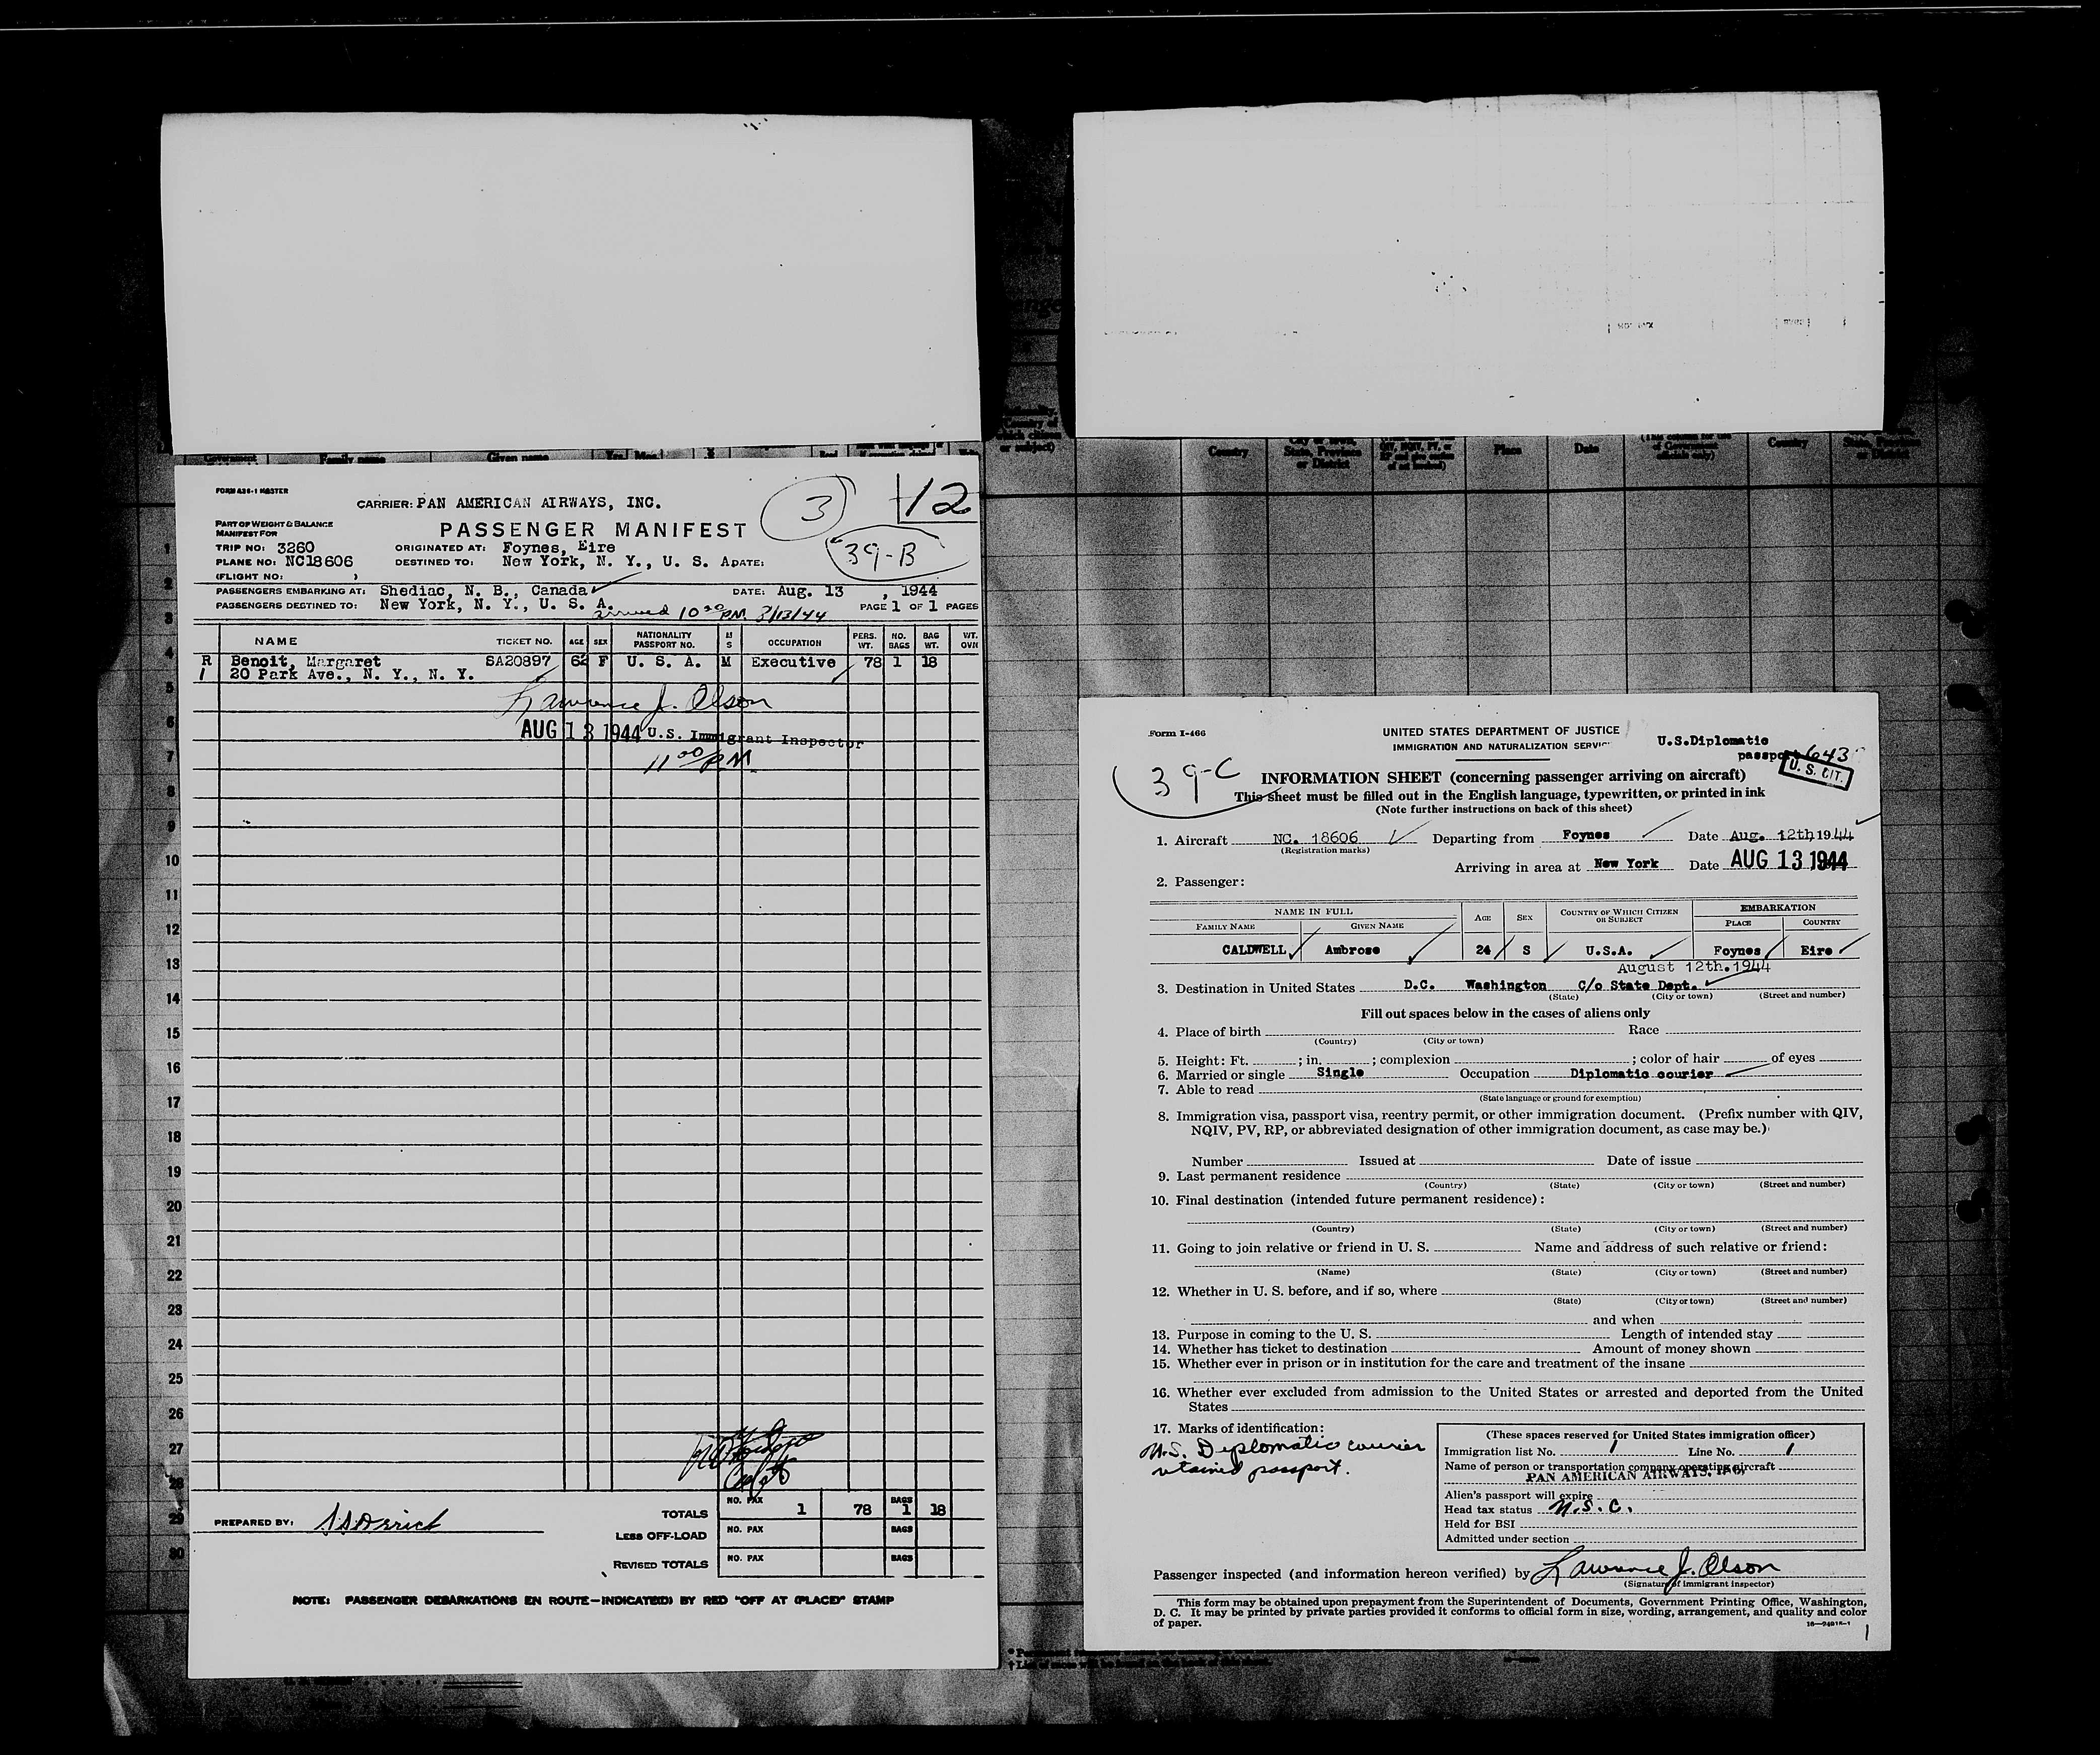 FORM A36-1 MASTER
CARRIER: PAN AMERICAN AIRWAYS, INC.
3
12
PART OF WEIGHT & BALANCE
MANIFEST FOR
PASSENGER MANIFEST
39-B
TRIP NO: 3260
ORIGINATED AT: Foynes, Eire
PLANE NO: NC18606
DESTINED TO: New York, N. Y., U. S. A
DATE:
(FLIGHT NO: )
PASSENGERS EMBARKING AT: Shediac, N. B., Canada
DATE: Aug. 13 , 1944
PASSENGERS DESTINED TO: New York, N. Y., U. S. A.
PAGE 1 OF 1 PAGES
arrived 10 30 PM. 8/13/44
NAME TICKET NO. AGE SEX NATIONALITY PASSPORT NO. M S OCCUPATION PERS. WT. NO. BAGS BAG WT. WT. OVN
R Benoit, Margaret SA20897 62 F U. S. A. M Executive 78 1 18
1 20 Park Ave., N. Y., N. Y.
Lawrence J. Olson
AUG 13 1944 U.S. Immigrant Inspector
11 00 PM
1
2
3
4
5
6
7
8
9
10
11
12
13
14
15
16
17
18
19
20
21
22
23
24
25
26
27
28
29
30
PREPARED BY:
TOTALS NO. PAX 1 78 BAGS 1 18
LESS OFF-LOAD NO. PAX BAGS
REVISED TOTALS NO. PAX BAGS
NOTE: PASSENGER DEBARKATIONS EN ROUTE—INDICATED BY RED "OFF AT (PLACE)" STAMP
Government Family name Given name Yrs. Mos.
Country City or town, State, Province or District Place Date Country
Form I-466
UNITED STATES DEPARTMENT OF JUSTICE
IMMIGRATION AND NATURALIZATION SERVICE
U.S.Diplomatic
passport 643
U. S. CIT.
39-C
INFORMATION SHEET (concerning passenger arriving on aircraft)
This sheet must be filled out in the English language, typewritten, or printed in ink
(Note further instructions on back of this sheet)
1. Aircraft NC. 18606 Departing from Foynes Date Aug. 12th, 1944
(Registration marks)
Arriving in area at New York Date AUG 13 1944
2. Passenger:
NAME IN FULL AGE SEX COUNTRY OF WHICH CITIZEN OR SUBJECT EMBARKATION
FAMILY NAME GIVEN NAME PLACE COUNTRY
CALDWELL Ambrose 24 S U.S.A. Foynes Eire
August 12th.1944
3. Destination in United States D.C. Washington C/o State Dept.
(State) (City or town) (Street and number)
Fill out spaces below in the cases of aliens only
4. Place of birth Race
(Country) (City or town)
5. Height: Ft. ; in. ; complexion ; color of hair of eyes
6. Married or single Single Occupation Diplomatic courier
7. Able to read
(State language or ground for exemption)
8. Immigration visa, passport visa, reentry permit, or other immigration document. (Prefix number with QIV,
NQIV, PV, RP, or abbreviated designation of other immigration document, as case may be.)
Number Issued at Date of issue
9. Last permanent residence
(Country) (State) (City or town) (Street and number)
10. Final destination (intended future permanent residence):
(Country) (State) (City or town) (Street and number)
11. Going to join relative or friend in U. S. Name and address of such relative or friend:
(Name) (State) (City or town) (Street and number)
12. Whether in U. S. before, and if so, where
(State) (City or town) (Street and number)
and when
13. Purpose in coming to the U. S. Length of intended stay
14. Whether has ticket to destination Amount of money shown
15. Whether ever in prison or in institution for the care and treatment of the insane
16. Whether ever excluded from admission to the United States or arrested and deported from the United
States
17. Marks of identification:
U.S. Diplomatic courier
retained passport.
(These spaces reserved for United States immigration officer)
Immigration list No. 1 Line No. 1
Name of person or transportation company operating aircraft
PAN AMERICAN AIRWAYS, INC.
Alien's passport will expire
Head tax status U.S.C.
Held for BSI
Admitted under section
Passenger inspected (and information hereon verified) by Lawrence J. Olson
(Signature of immigrant inspector)
This form may be obtained upon prepayment from the Superintendent of Documents, Government Printing Office, Washington,
D. C. It may be printed by private parties provided it conforms to official form in size, wording, arrangement, and quality and color
of paper.
1